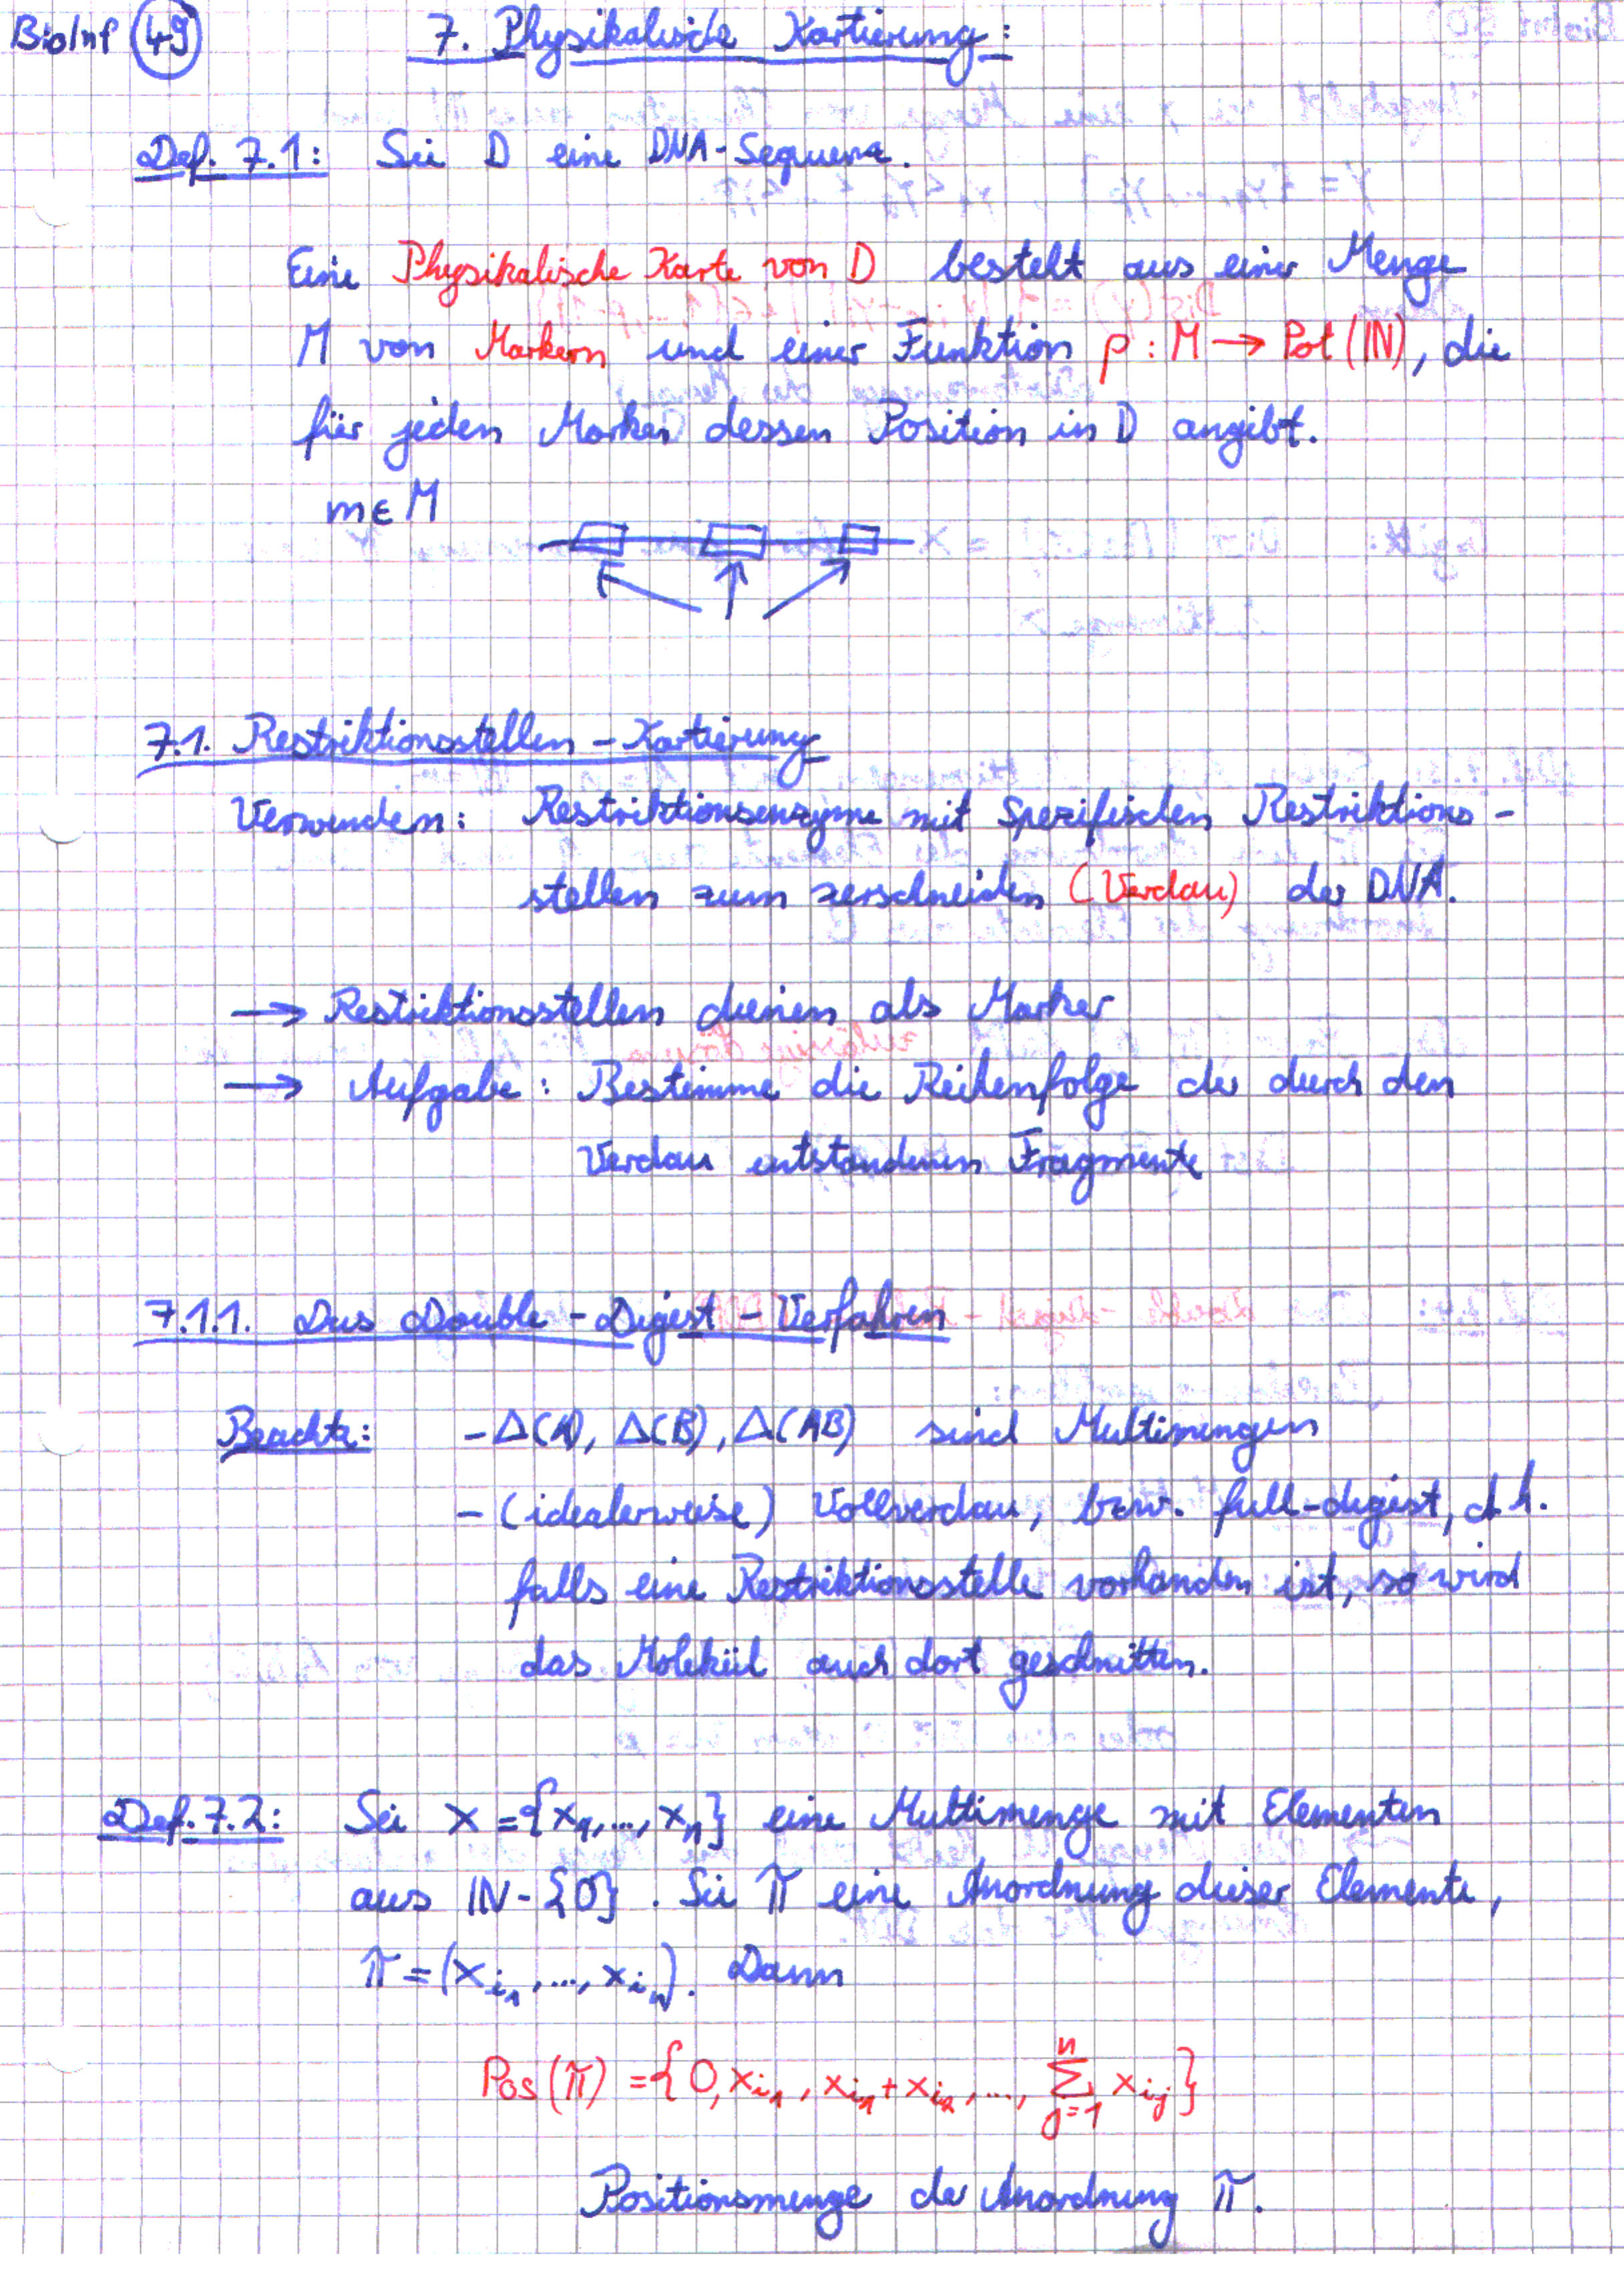 BioInf 49 7. Physikalische Kartierung:
Def. 7.1: Sei D eine DNA-Sequenz.
Eine Physikalische Karte von D besteht aus einer Menge
M von Markern und einer Funktion ρ : M → Pot(ℕ), die
für jeden Marker dessen Position in D angibt.
m ∈ M
7.1. Restriktionsstellen-Kartierung
Verwenden: Restriktionsenzyme mit spezifischen Restriktions-
stellen zum zerschneiden (Verdau) der DNA.
→ Restriktionsstellen dienen als Marker
→ Aufgabe: Bestimme die Reihenfolge der durch den
Verdau entstandenen Fragmente
7.1.1. Das Double-Digest-Verfahren
Beachte: - Δ(A), Δ(B), Δ(AB) sind Multimengen
- (idealerweise) Vollverdau, bzw. full-digest, d.h.
falls eine Restriktionsstelle vorhanden ist, so wird
das Molekül auch dort geschnitten.
Def. 7.2: Sei X = {x₁, ..., xₙ} eine Multimenge mit Elementen
aus ℕ - {0}. Sei π eine Anordnung dieser Elemente,
π = (x_{i₁}, ..., x_{iₙ}). Dann
Pos(π) = {0, x_{i₁}, x_{i₁} + x_{i₂}, ..., ∑_{j=1}^{n} x_{i_j}}
Positionsmenge der Anordnung π.